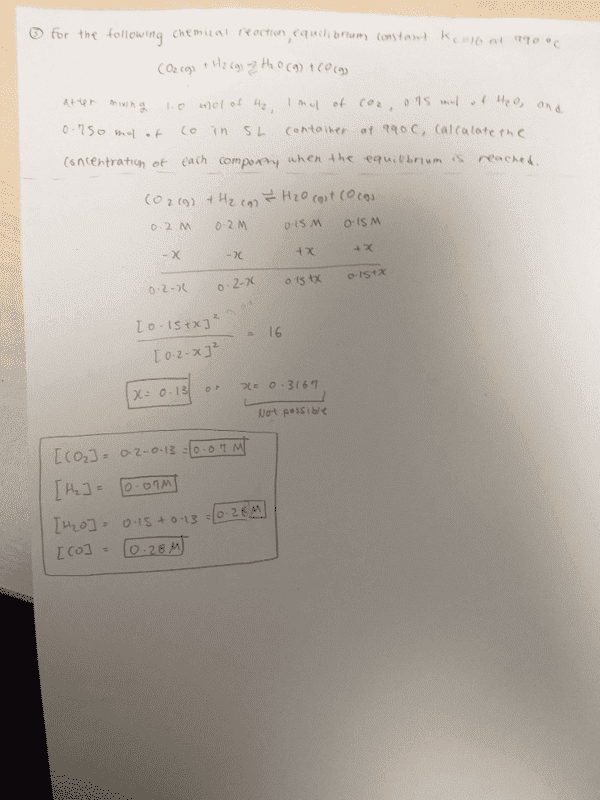 ③ For the following chemical reaction, equilibrium constant Kc=16 at 990 °C
CO2(g) + H2(g) ⇌ H2O(g) + CO(g)
After mixing 1.0 mol of H2, 1 mol of CO2, 0.75 mol of H2O, and
0.750 mol of CO in 5L container at 990C, calculate the
concentration of each company when the equilibrium is reached.
CO2(g) + H2(g) ⇌ H2O(g) + CO(g)
0.2 M 0.2 M 0.15 M 0.15 M
-x -x +x +x
0.2-x 0.2-x 0.15+x 0.15+x
[0.15+x]² = 16
[0.2-x]²
x = 0.13 or x = 0.3167
Not possible
[CO2] = 0.2-0.13 = 0.07 M
[H2] = 0.07M
[H2O] = 0.15 + 0.13 = 0.28 M
[CO] = 0.28 M